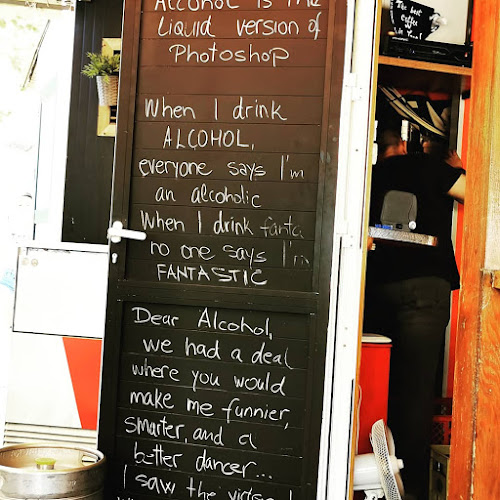 Alcohol is the
Liquid version of
Photoshop
When I drink
ALCOHOL,
everyone says I'm
an alcoholic
When I drink fanta
no one says I'm
FANTASTIC
Dear Alcohol,
we had a deal
where you would
make me funnier,
smarter, and a
better dancer...
I saw the
The best
Coffee